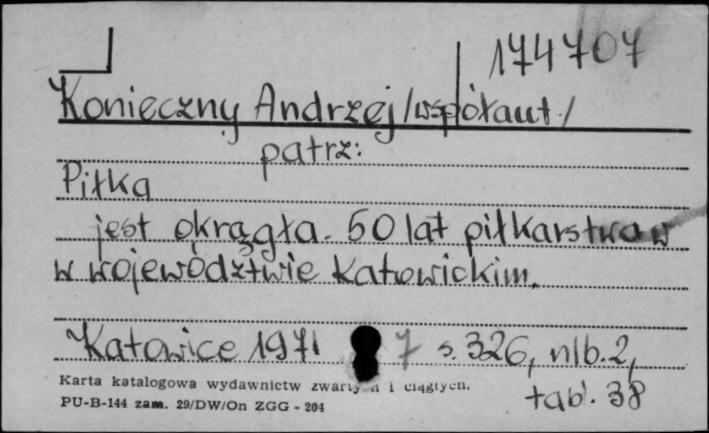 174707
Konieczny Andrzej /współaut./
patrz:
Piłka
jest okrągła. 50 lat piłkarstwa w
w województwie Katowickim.
Katowice 1971 7 s. 326, nlb. 2,
tabl. 38
Karta katalogowa wydawnictw zwartych i ciągłych.
PU-B-144 zam. 29/DW/On ZGG - 204